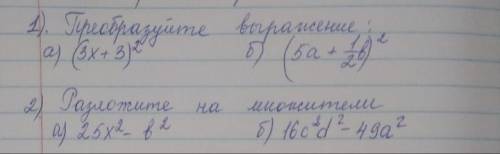 1). Преобразуйте выражение:
а) (3x+3)² б) (5a + 1/2b)²
2) Разложите на множители
а) 25x² - b² б) 16c²d² - 49a²